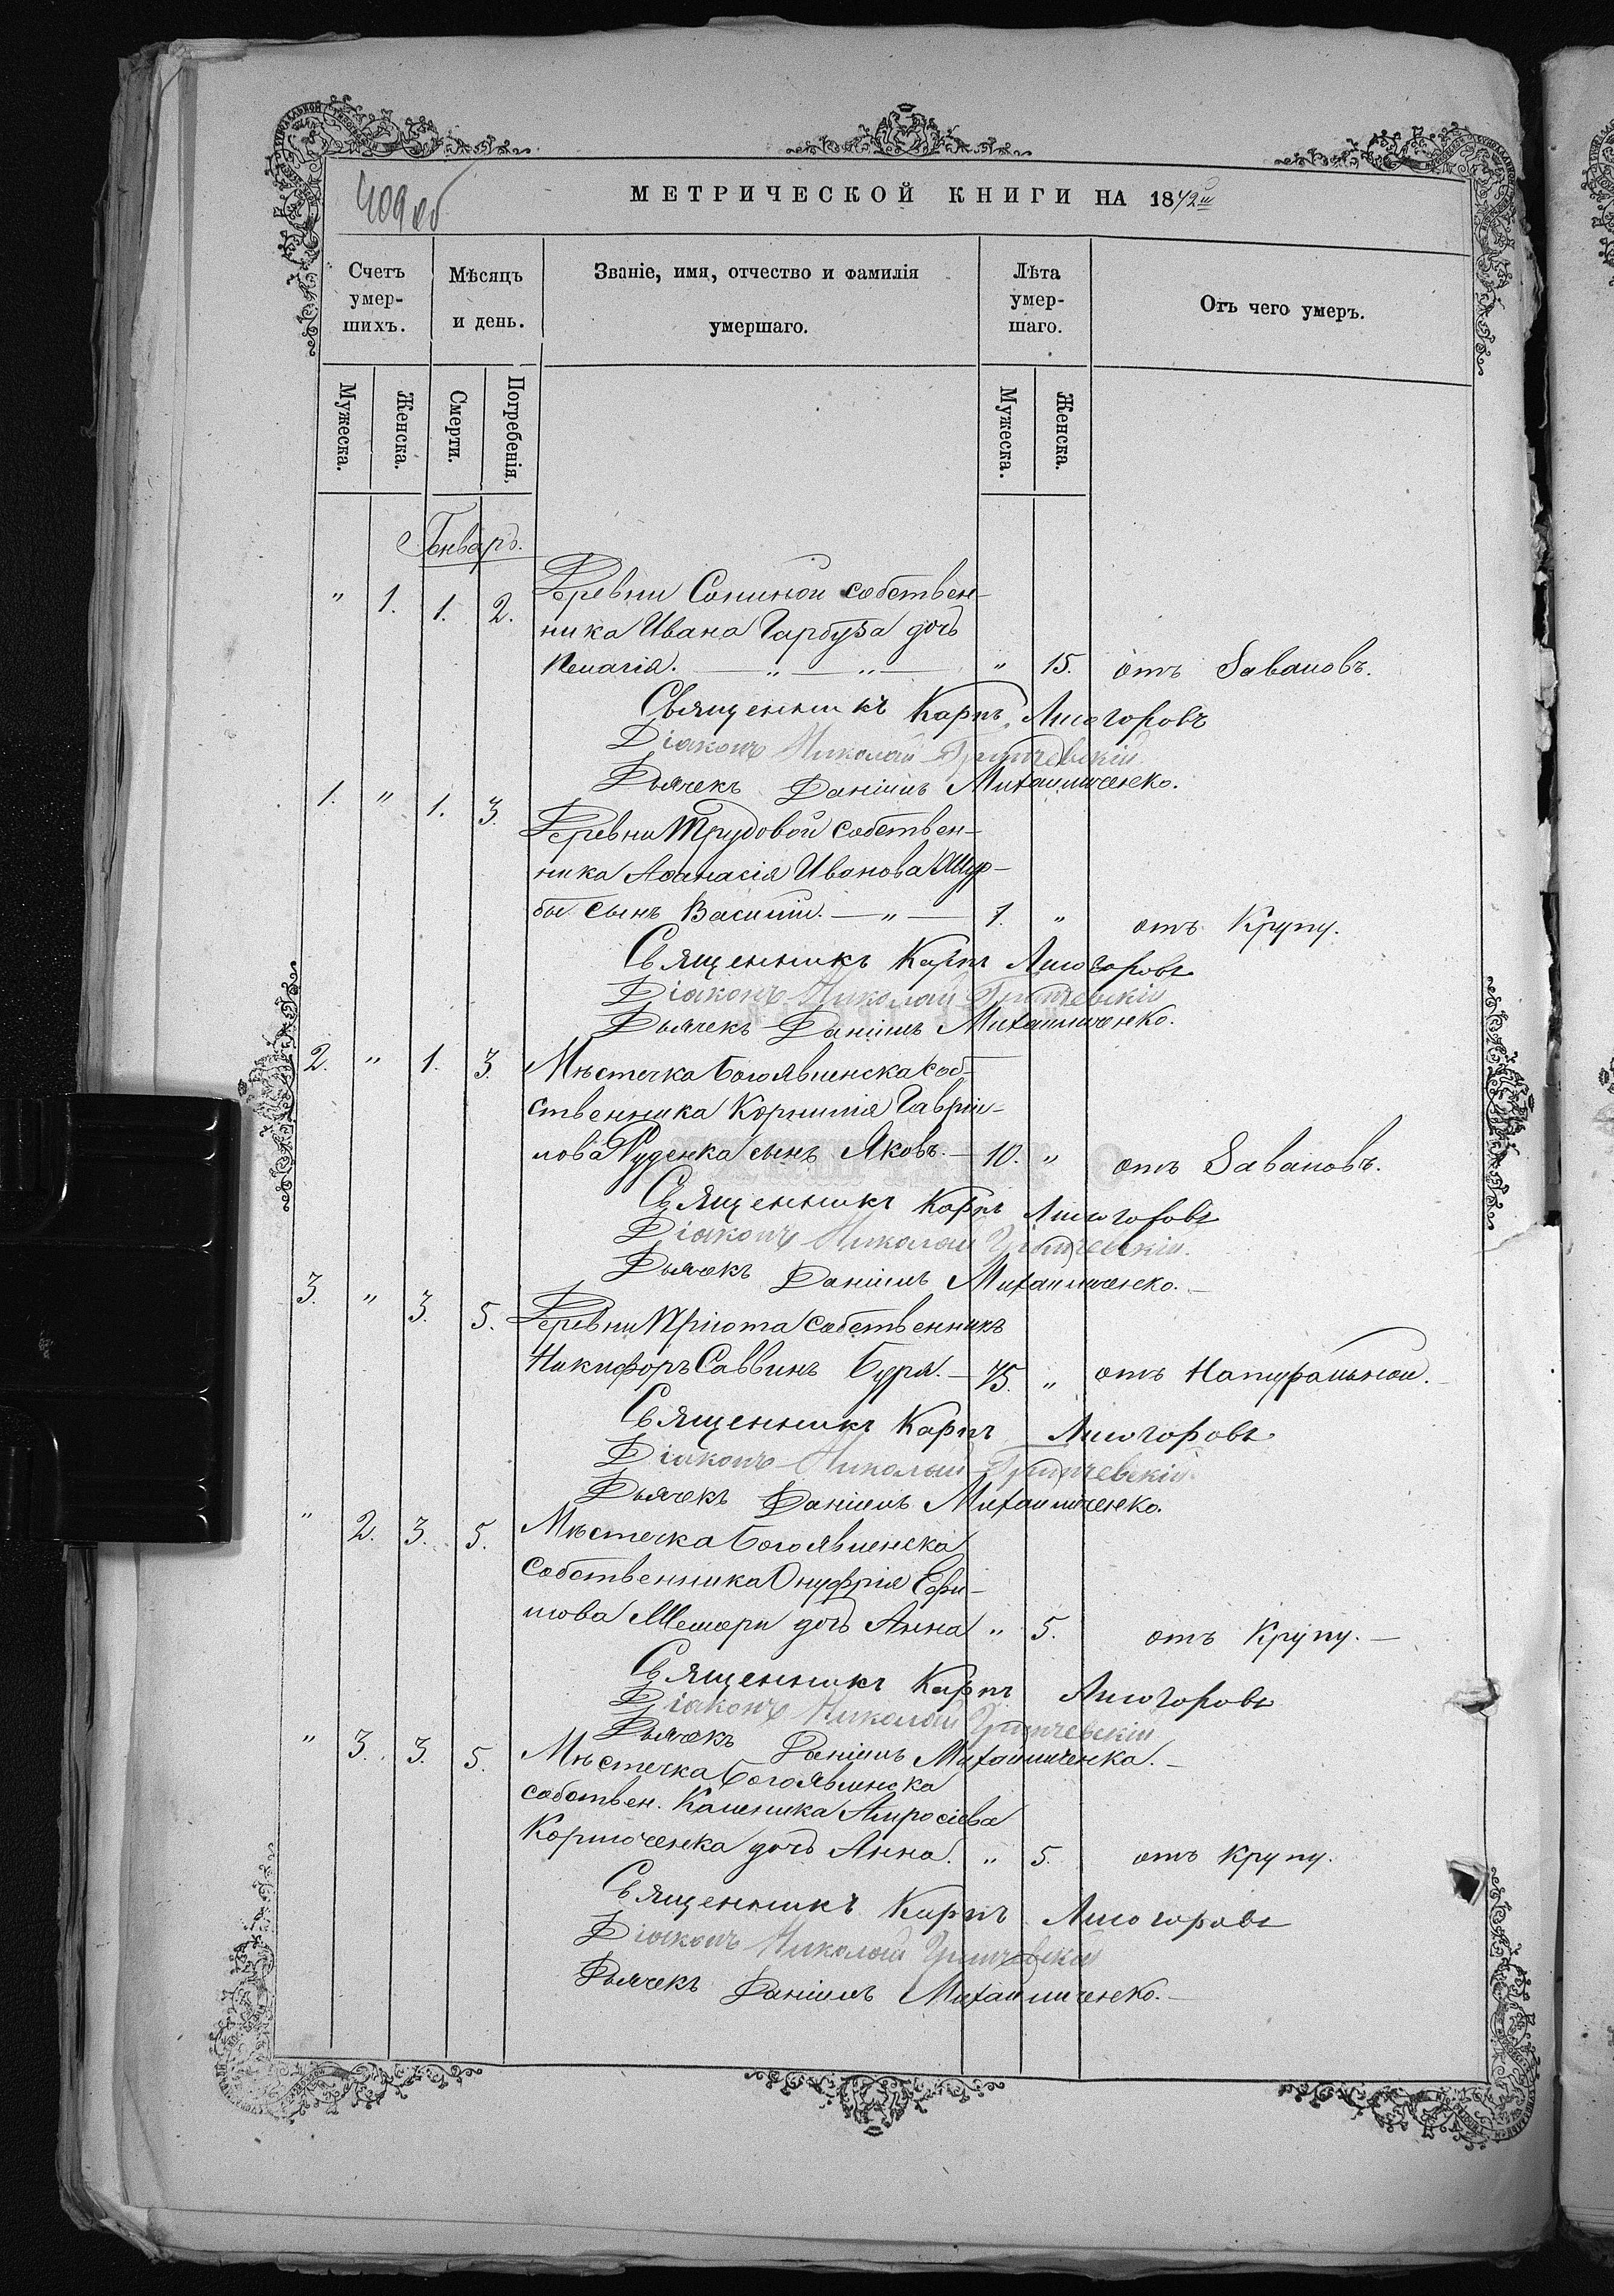 409 об
МЕТРИЧЕСКОЙ КНИГИ НА 1872й
Счетъ умер-шихъ.
Мѣсяцъ и день.
Званіе, имя, отчество и фамилія умершаго.
Лѣта умер-шаго.
Отъ чего умеръ.
Мужеска.
Женска.
Смерти.
Погребенія.
Мужеска.
Женска.
Генваръ.
" 1. 1. 2. Деревни Сониной собствен-
ника Ивана Гарбуза дочь
Пелагія. — " — " — " 15. отъ Баваковъ.
Священникъ Карпъ Лисогоровъ
Діаконъ Николай
Дьячекъ Даніилъ Михаиличенко.
1. " 1. 3. Деревни Трудовой собствен-
ника Аѳанасія Иванова
бы сынъ Василій. — " — 1. " отъ Крупу.
Священникъ Карпъ Лисогоровъ
Діаконъ Николай
Дьячекъ Даніилъ Михаиличенко.
2. " 1. 3. Мѣстечка Богоявленска соб-
ственника Корнилія Гаврии-
лова Руденка сынъ Яковъ. — 10. " отъ
Священникъ Карпъ Лисогоровъ
Діаконъ Николай
Дьячекъ Даніилъ Михаиличенко. —
3. " 3. 5. Деревни Пріюта собственникъ
Никифоръ Саввинъ Буря. — 75. " отъ Натуральной. —
Священникъ Карпъ Лисогоровъ
Діаконъ Николай
Дьячекъ Даніилъ Михаиличенко.
" 2. 3. 5. Мѣстечка Богоявленска
собственника Онуфрія Ефи-
мова дочь Анна " 5. отъ Крупу. —
Священникъ Карпъ Лисогоровъ
Діаконъ Николай
Дьячекъ Даніилъ Михаиличенка. —
" 3. 3. 5. Мѣстечка Богоявленска
собствен. Калиника Амросіева
дочь Анна. " 5. отъ Крупу.
Священникъ Карпъ Лисогоровъ
Діаконъ Николай
Дьячекъ Даніилъ Михаиличенко. —